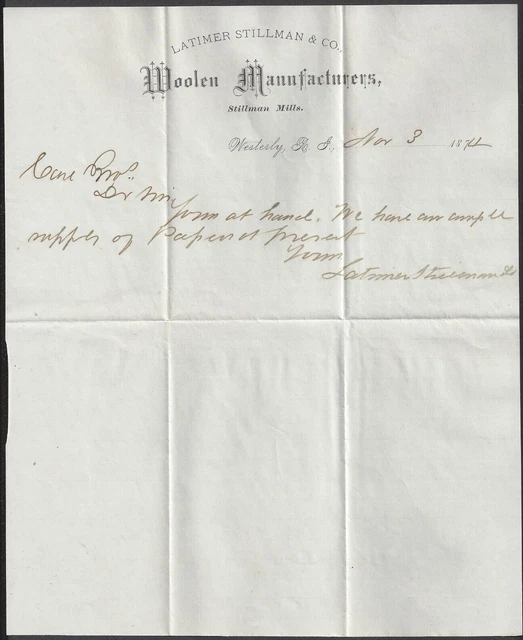 LATIMER STILLMAN & CO.,
Woolen Manufacturers,
Stillman Mills.
Westerly, R. I., Nov 3 1874
Bros.
Dr Sirs
Yours at hand. We have an ample
supply of Papers at present
Yours
Latimer Stillman & Co